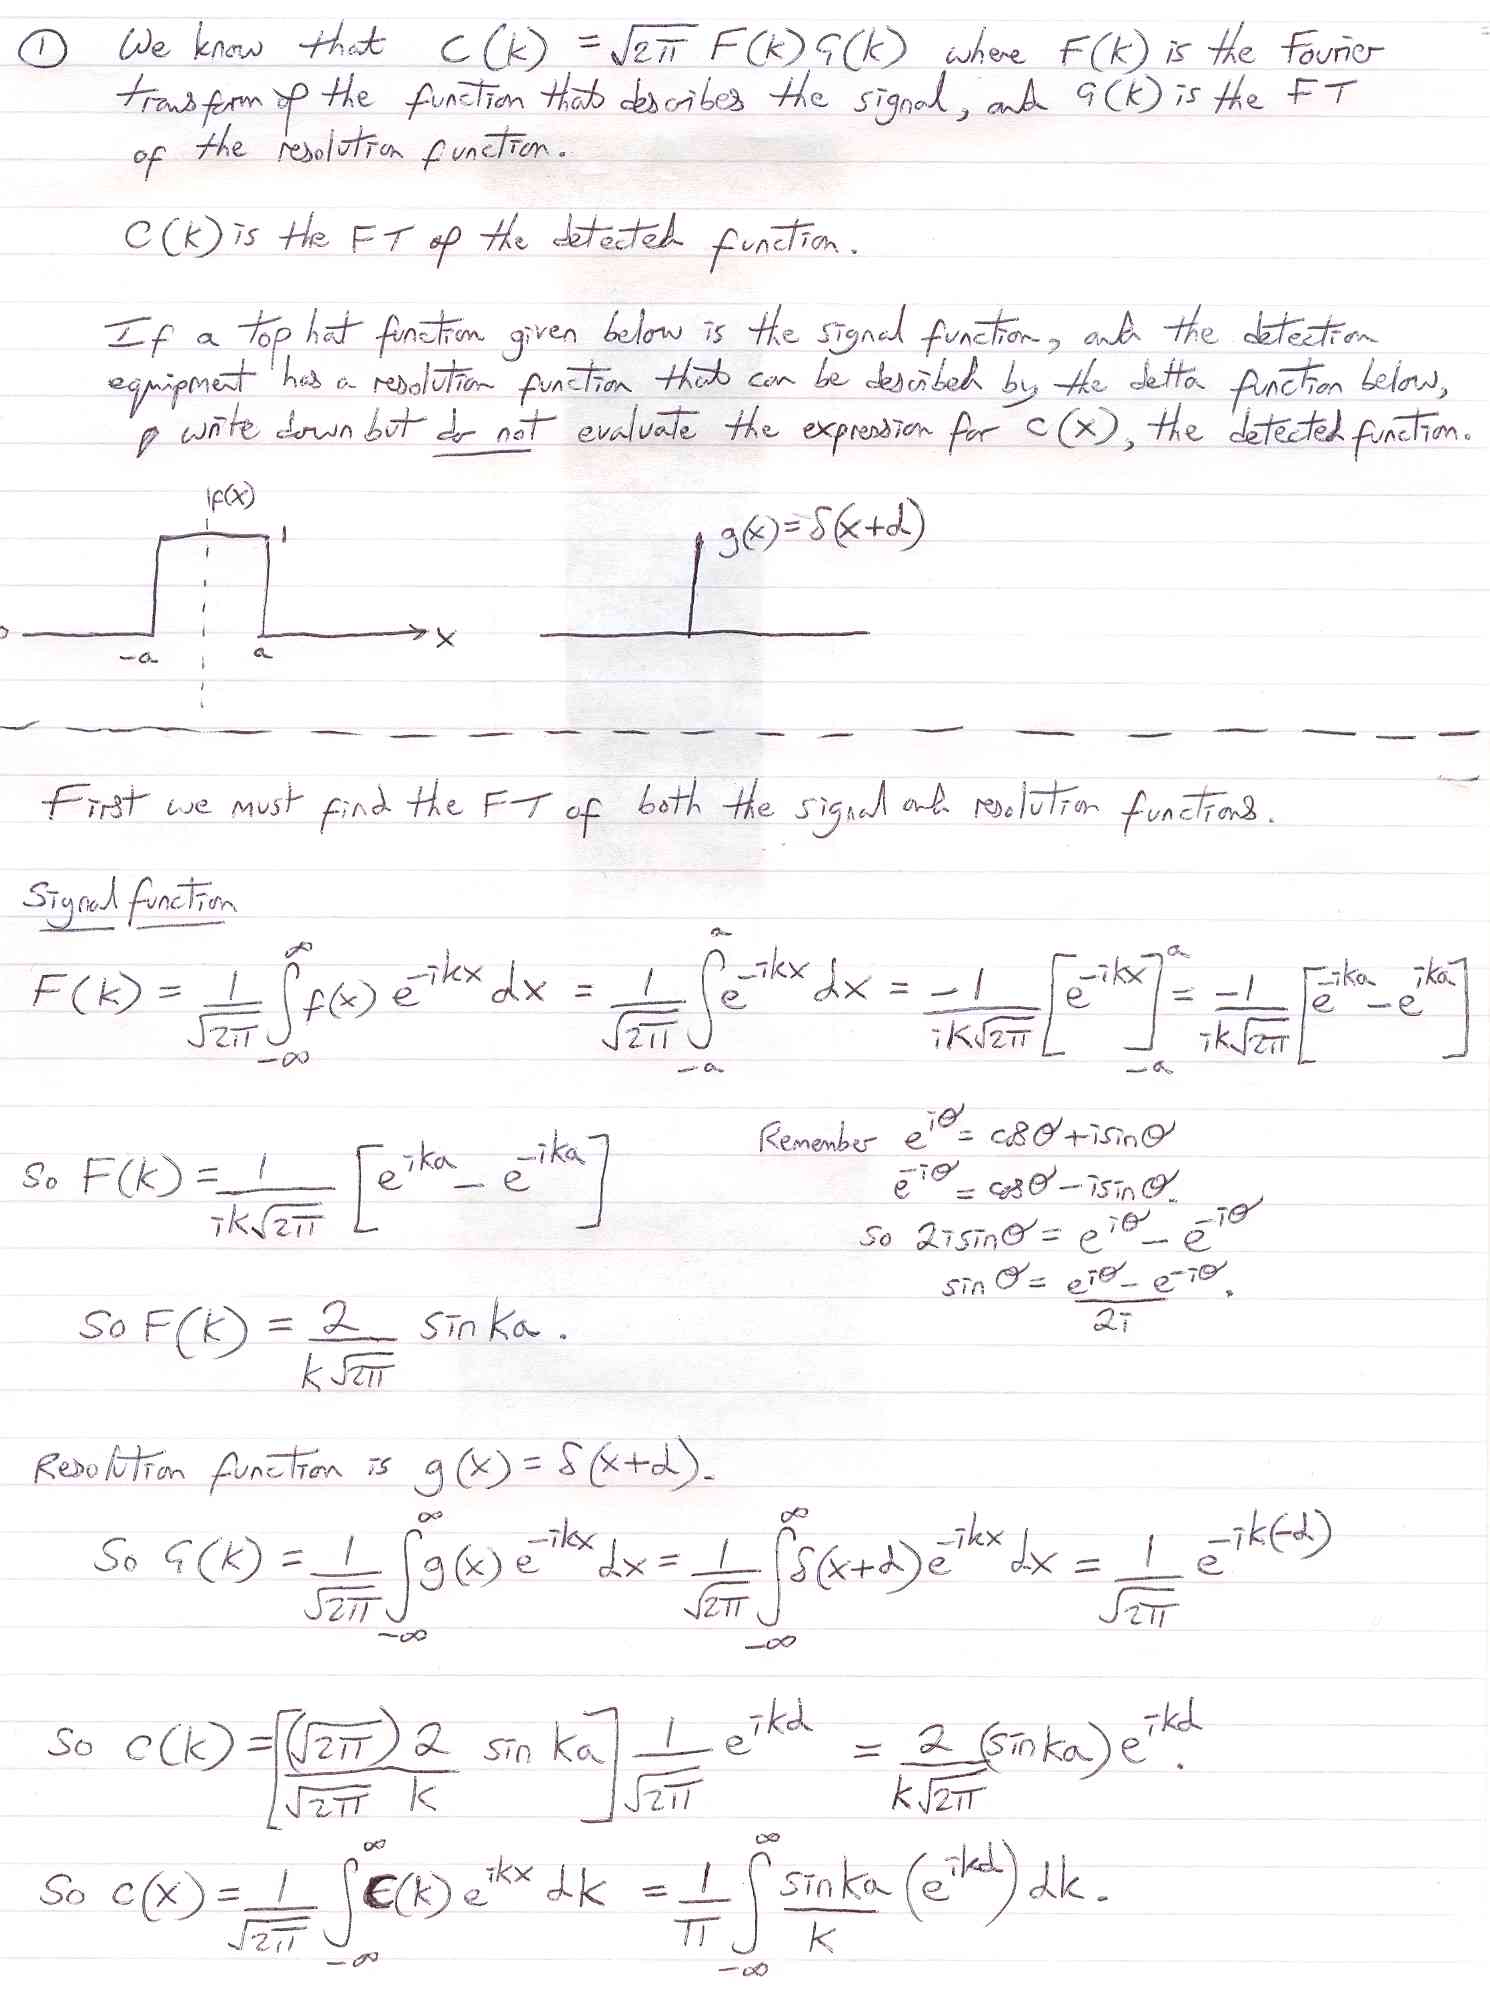 ① We know that C(k) = √2π F(k) G(k) where F(k) is the Fourier
transform of the function that describes the signal, and G(k) is the FT
of the resolution function.
C(k) is the FT of the detected function.
If a top hat function given below is the signal function, and the detection
equipment has a resolution function that can be described by the delta function below,
write down but do not evaluate the expression for c(x), the detected function.
f(x)
1
g(x) = δ(x+d)
0 -a a x
First we must find the FT of both the signal and resolution functions.
Signal function
F(k) = 1/√2π ∫_{-∞}^{∞} f(x) e^{-ikx} dx = 1/√2π ∫_{-a}^{a} e^{-ikx} dx = -1/(ik√2π) [e^{-ikx}]_{-a}^{a} = -1/(ik√2π) [e^{-ika} - e^{ika}]
So F(k) = 1/(ik√2π) [e^{ika} - e^{-ika}]
Remember e^{iθ} = cosθ + isinθ
e^{-iθ} = cosθ - isinθ.
So 2isinθ = e^{iθ} - e^{-iθ}
sinθ = (e^{iθ} - e^{-iθ})/2i.
So F(k) = 2/(k√2π) sin ka.
Resolution function is g(x) = δ(x+d).
So G(k) = 1/√2π ∫_{-∞}^{∞} g(x) e^{-ikx} dx = 1/√2π ∫_{-∞}^{∞} δ(x+d) e^{-ikx} dx = 1/√2π e^{-ik(-d)}
So C(k) = [(√2π) 2/(√2π k) sin ka] 1/√2π e^{ikd} = 2/(k√2π) (sin ka) e^{ikd}.
So c(x) = 1/√2π ∫_{-∞}^{∞} C(k) e^{ikx} dk = 1/π ∫_{-∞}^{∞} sin ka/k (e^{ikd}) dk.